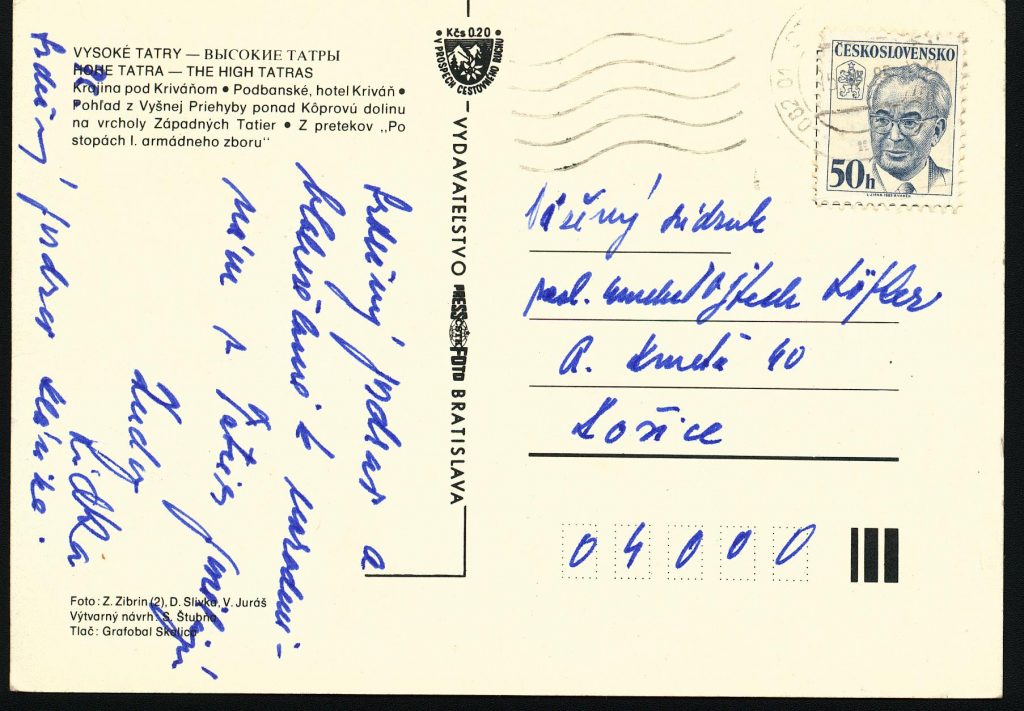 VYSOKÉ TATRY — ВЫСОКИЕ ТАТРЫ
HOHE TATRA — THE HIGH TATRAS
Krajina pod Kriváňom • Podbanské, hotel Kriváň •
Pohľad z Vyšnej Priehyby ponad Kôprovú dolinu
na vrcholy Západných Tatier • Z pretekov „Po
stopách I. armádneho zboru"
Kčs 0.20
V PROSPECH CESTOVNÉHO RUCHU
VYDAVATEĽSTVO PRESSFOTO BRATISLAVA
ČESKOSLOVENSKO
50h
Vážený súdruh
Löffler
A. Kmeťa 40
Košice
04000
Srdečný pozdrav a
blahoželanie k narodeni-
nám z Tatier
Srdečný pozdrav
Foto: Z. Zibrin (2), D. Slivka, V. Juráš
Výtvarný návrh: S. Štubňa
Tlač: Grafobal Skalica